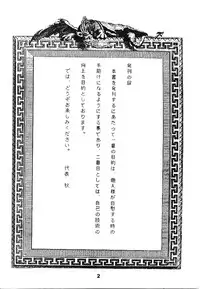 発刊の辞
本書を発刊するにあたって一番の目的は、殿方様が自慰する時の
手助けになるようにする事であり、二番目としては、自己の技術の
向上を目的としております。
では、どうぞお楽しみください。
代表 秋
2